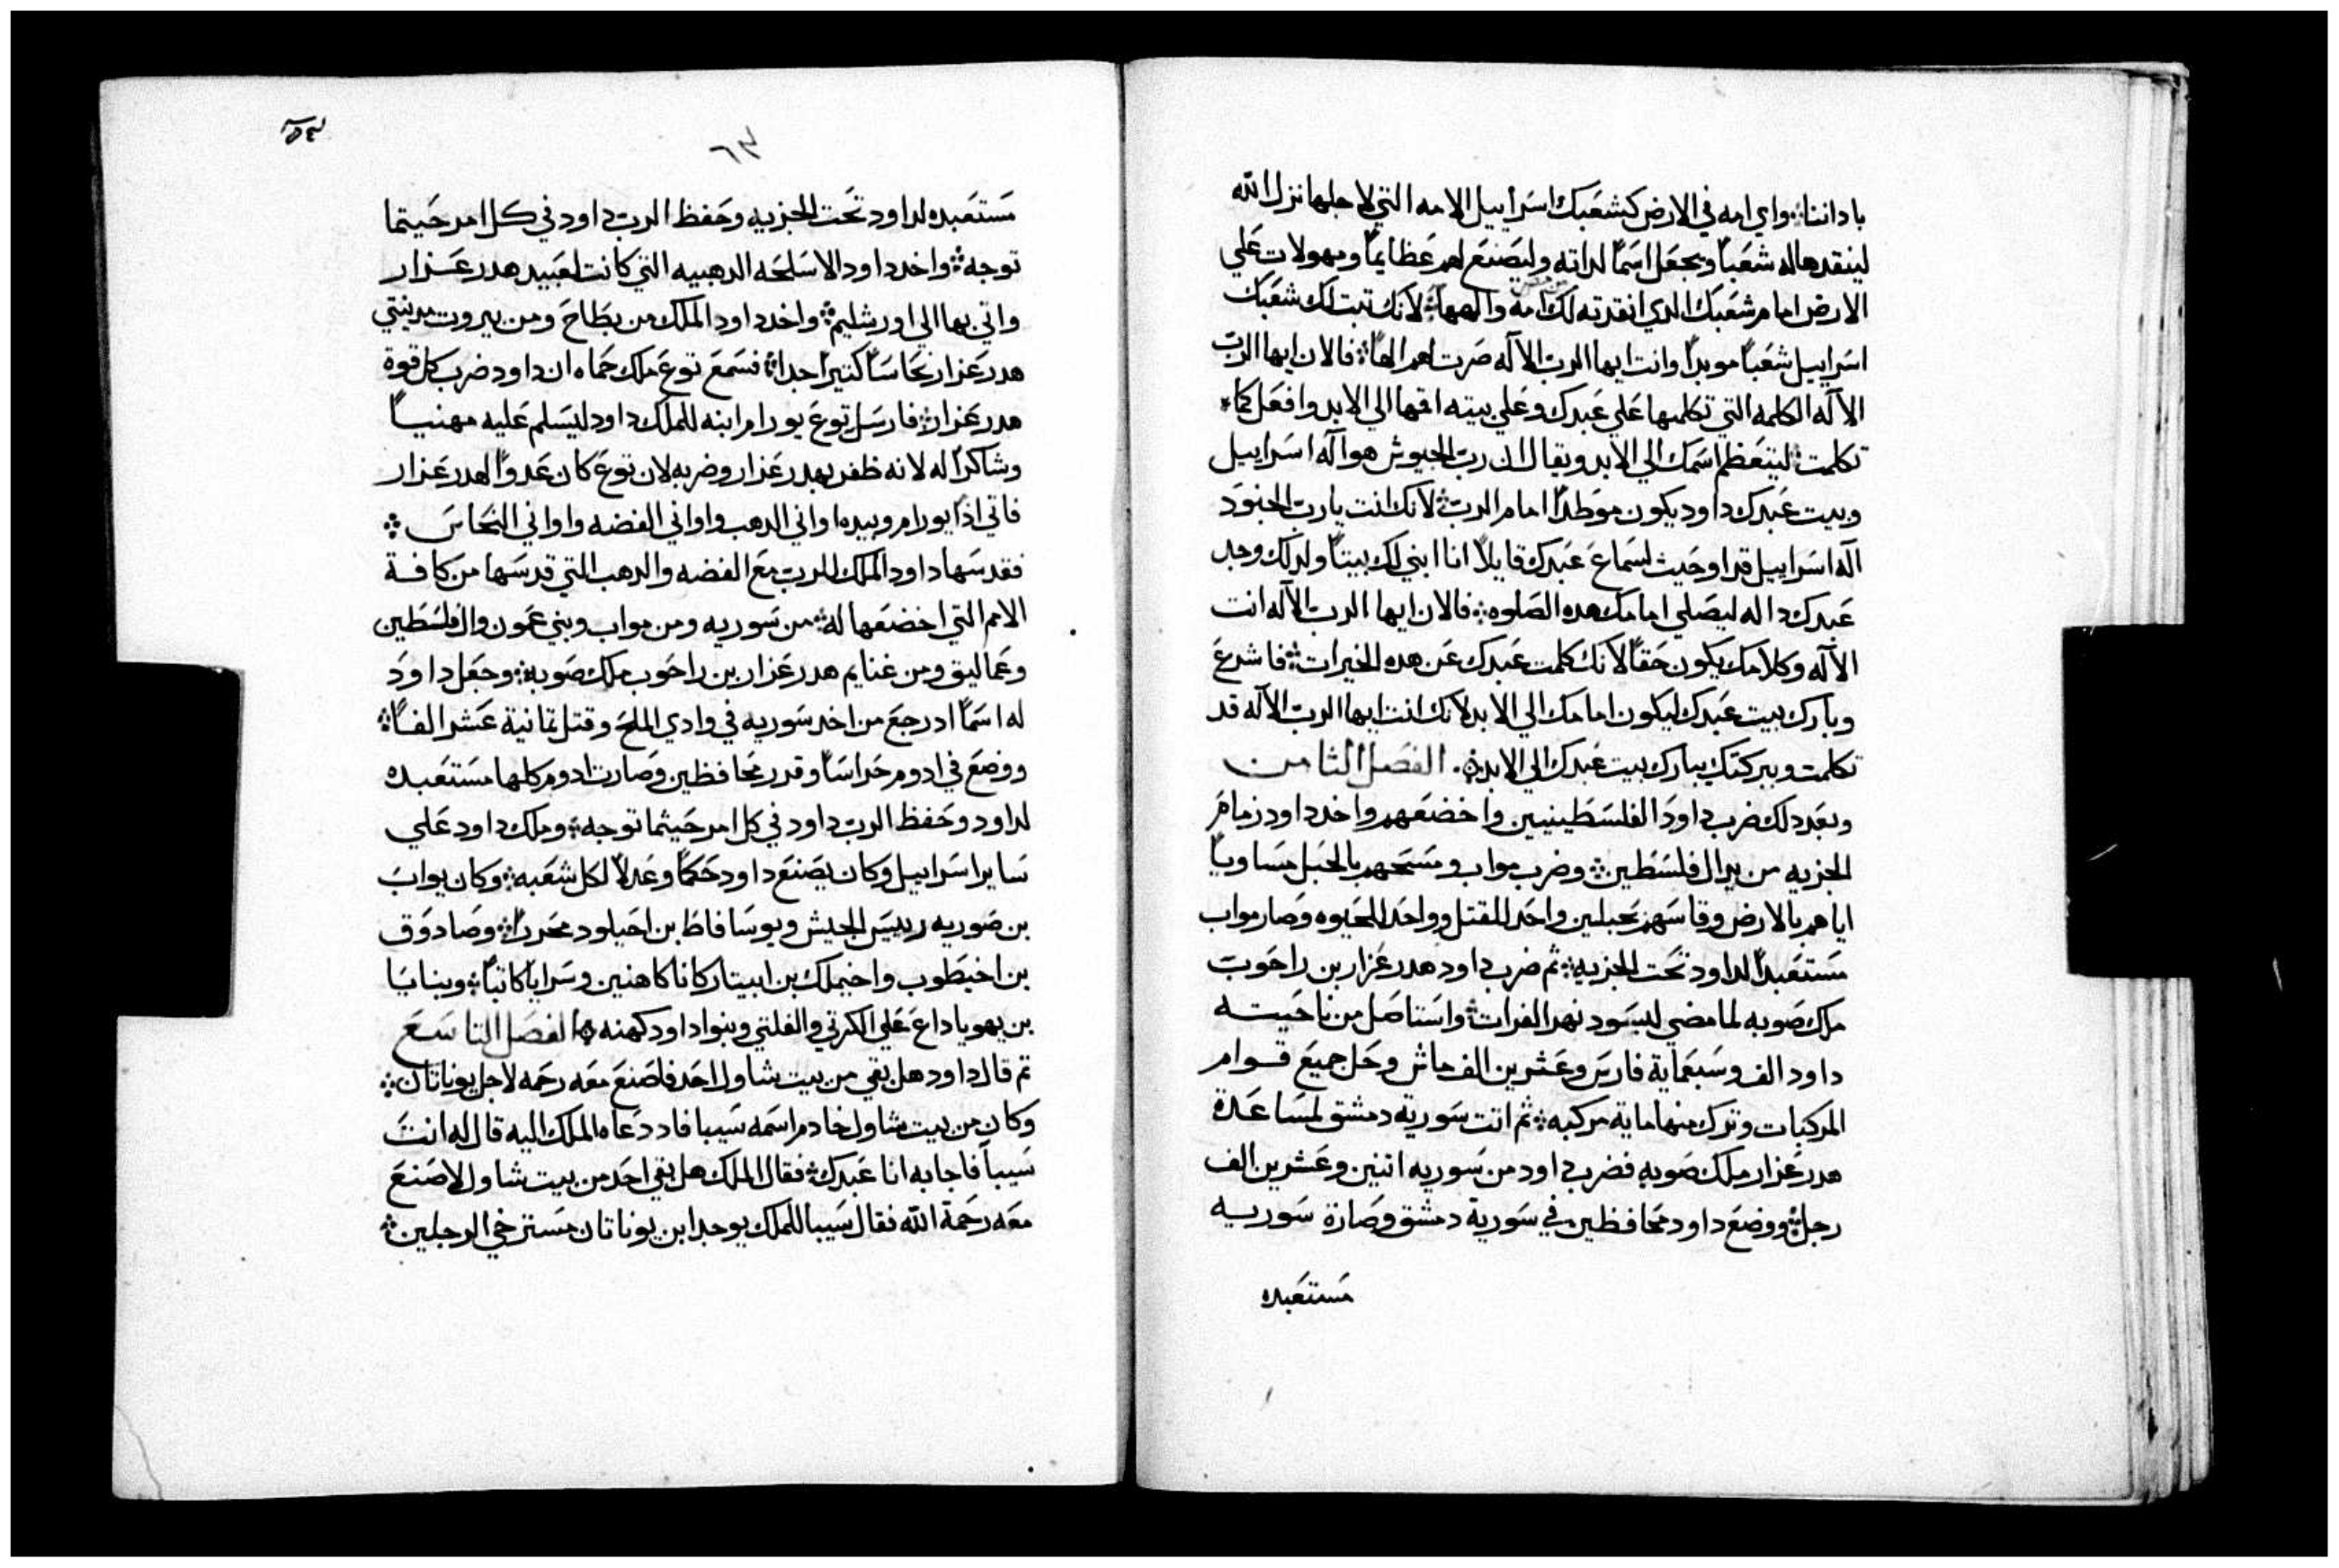 باداننا ۞ واي امه في الارض كشعبك اسرابيل الامه التي لاجلها نزل الله
لينقدها له شعباً ويجعل اسماً لداته وليصنع لهم عظايماً ومهولات علي
الارض امام شعبك الدي انقدته لك من مصر امه والهها ۞ لانك تبت لك شعبك
اسرابيل شعباً موبداً وانت ايها الرب الاله صرت لهم الهاً ۞ فالان ايها الرب
الاله الكلمه التي تكلمتها علي عبدك وعلي بيته اقمها الي الابد وافعل كما
تكلمت ۞ ليتعظم اسمك الي الابد ويقال ان رب الجيوش هو اله اسرابيل
وبيت عبدك داود يكون موطداً امام الرب ۞ لانك انت يا رب الجنود
اله اسرابيل قد اوحيت لسماع عبدك قايلاً انا ابني لك بيتاً ولدلك وجد
عبدك داله ليصلي امامك هده الصلوه ۞ فالان ايها الرب الاله انت
الاله وكلامك يكون حقاً لانك كلمت عبدك عن هده الخيرات ۞ فاشرع
وبارك بيت عبدك ليكون امامك الي الابد لانك انت ايها الرب الاله قد
تكلمت وببركتك يبارك بيت عبدك الي الابد ۞ الفصل الثامن
وبعد دلك ضرب داود الفلسطينيين واخضعهم واخد داود زمام
الجزيه من يد ال فلسطين ۞ وضرب مواب ومسحهم بالحبل مساوياً
اياهم بالارض وقاسهم بحبلين واحد للقتل وواحد للحيوه وصار مواب
مستعبداً لداود تحت الجزيه ۞ ثم ضرب داود هدر عزار بن راحوب
ملك صوبه لما مضي ليسود نهر الفرات ۞ واستاصل من ناحيته
داود الف وسبعماية فارس وعشرين الف ماش وحل جميع قوام
المركبات وترك منها ماية مركبه ۞ ثم اتت سورية دمشق لمساعدة
هدر عزار ملك صوبه فضرب داود من سوريه اتنين وعشرين الف
رجل ۞ ووضع داود محافظين في سورية دمشق وصارة سوريه
مستعبده
٦٣
مستعبده لداود تحت الجزيه وحفظ الرب داود في كل امر حيتما
توجه ۞ واخد داود الاسلحه الدهبيه التي كانت لعبيد هدر عزار
واتي بها الي اورشليم ۞ واخد داود الملك من بطاح ومن بيروت مدينتي
هدر عزار نحاساً كتيراً جدا ۞ فسمع توع ملك حماه ان داود ضرب كل قوة
هدر عزار ۞ فارسل توع يورام ابنه للملك داود ليسلم عليه مهنياً
وشاكراً له لانه ظفر بهدر عزار وضربه لان توع كان عدواً لهدر عزار
فاتي اداً يورام وبيده اواني الدهب واواني الفضه واواني النحاس ۞
فقدسها داود الملك للرب مع الفضه والدهب التي قدسها من كافة
الامم التي اخضعها له ۞ من سوريه ومن مواب وبني عمون وال فلسطين
وعماليق ومن غنايم هدر عزار بن راحوب ملك صوبه ۞ وجعل داود
له اسماً اد رجع من اخد سوريه في وادي الملح وقتل تمانية عشر الفاً ۞
ووضع في ادوم حراساً وقدر محافظين وصارت ادوم كلها مستعبده
لداود وحفظ الرب داود في كل امر حيثما توجه ۞ وملك داود علي
ساير اسرابيل وكان يصنع داود حكماً وعدلاً لكل شعبه ۞ وكان يواب
بن صوريه رييس الجيش ويوسافاط بن احيلود محرراً ۞ وصادوق
بن اخيطوب واخيملك بن ابيتار كانا كاهنين وسرايا كاتباً ۞ وبنايا
بن يهوياداع علي الكرتي والفلتي وبنوا داود كهنه ۞ الفصل التاسع
تم قال داود هل بقي من بيت شاول احد فلصنع معه رحمه لاجل يوناتان ۞
وكان من بيت شاول خادم اسمه سيبا فاد دعاه الملك اليه قال له انت
سيبا فاجابه انا عبدك ۞ فقال الملك هل بقي احد من بيت شاول لاصنع
معه رحمة الله فقال سيبا للملك يوجد ابن يوناتان مسترخي الرجلين ۞